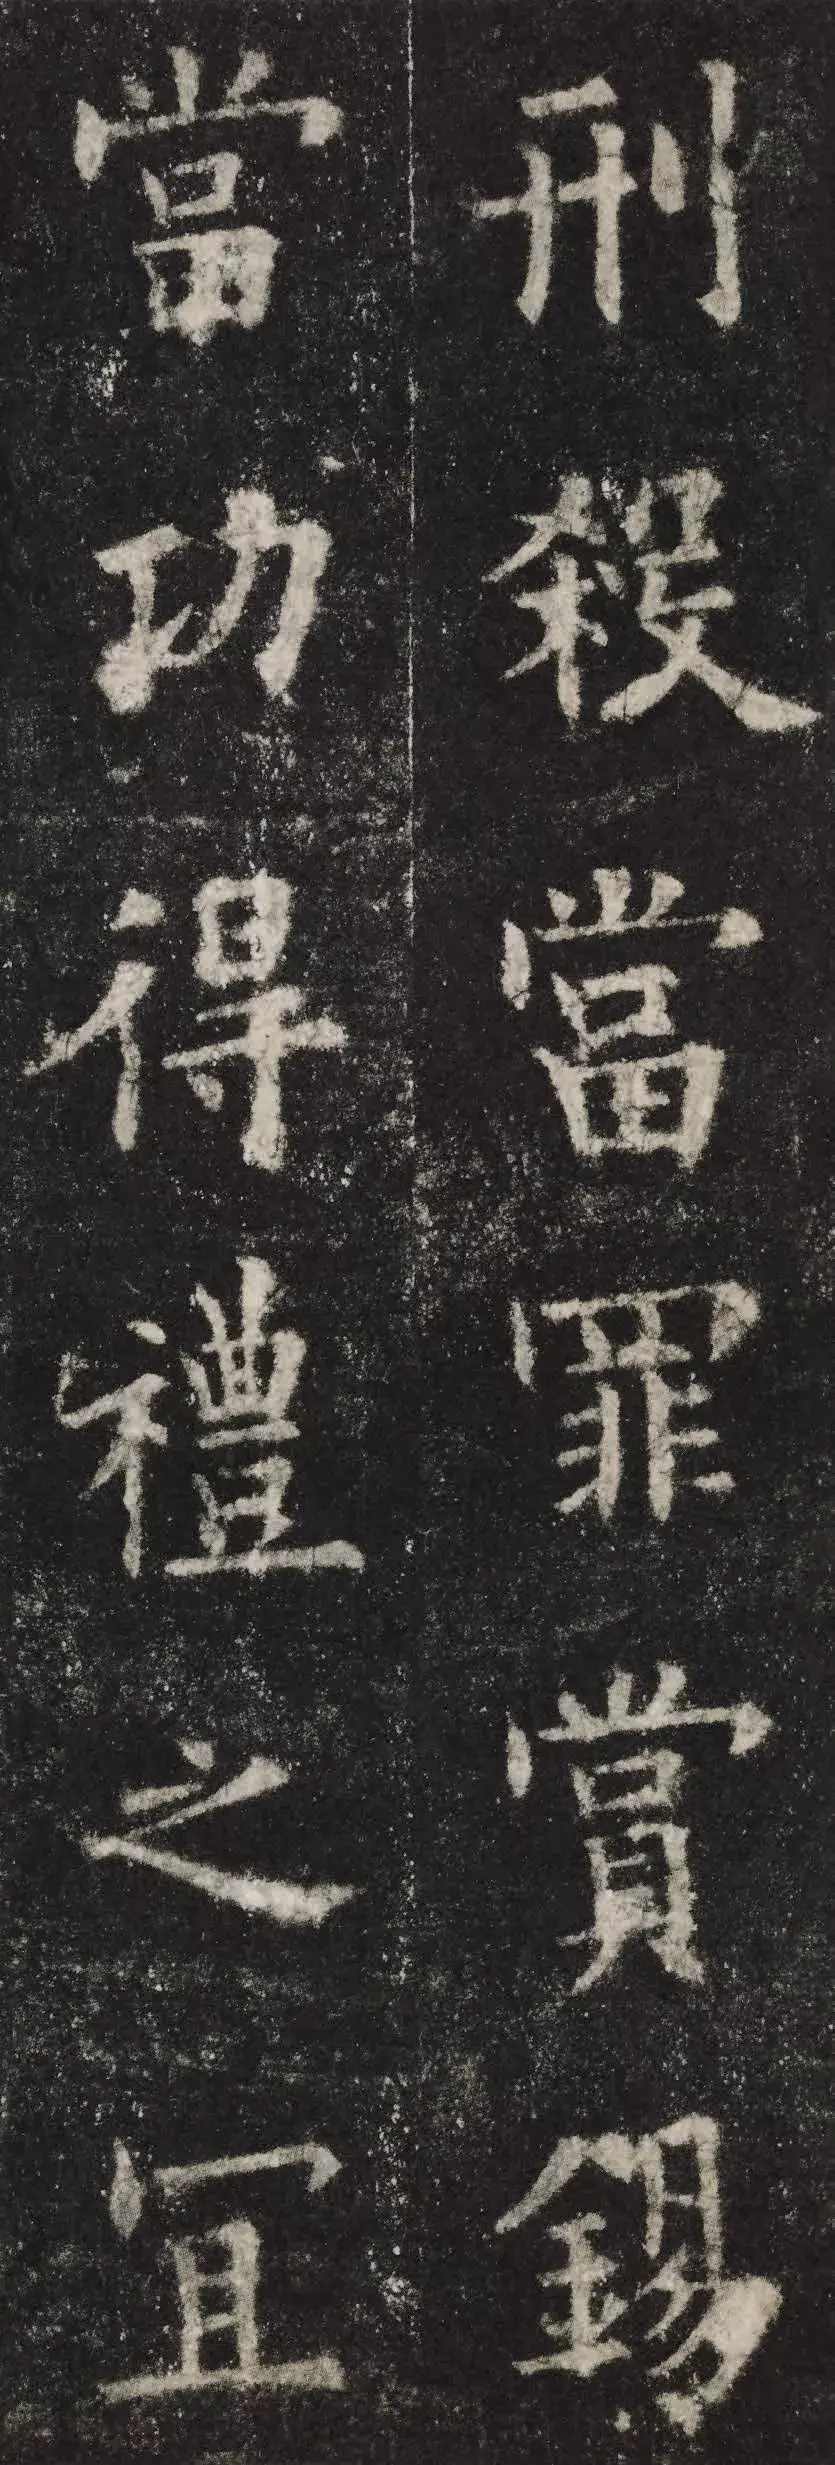 刑殺當罪賞錫
當功得禮之宜